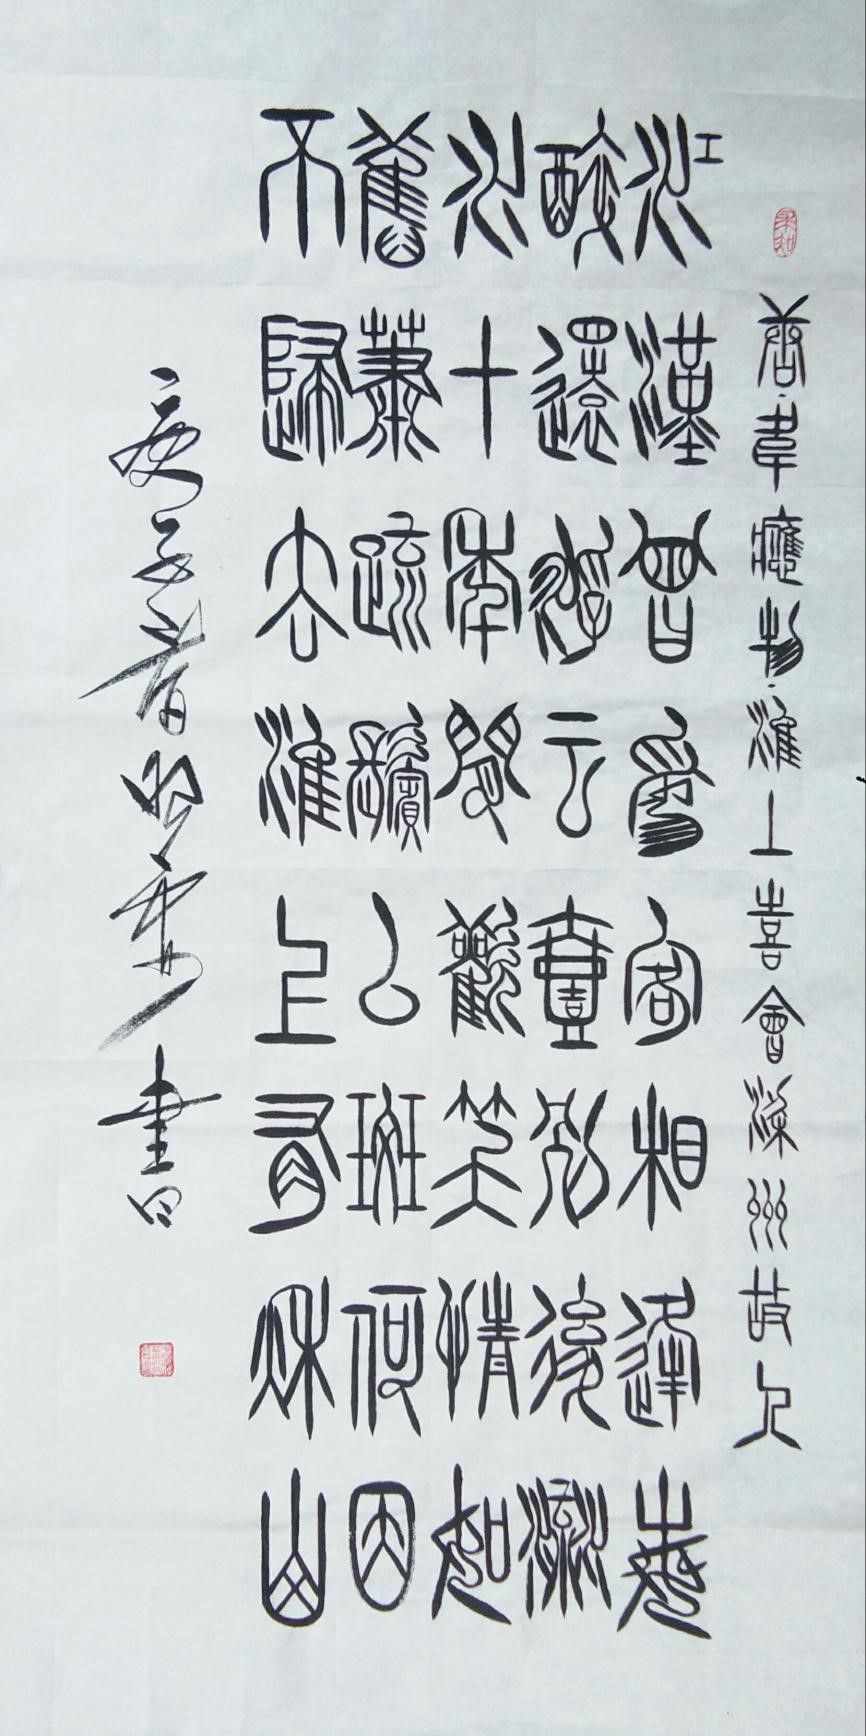 唐·韋應物·淮上喜會梁州故人
江漢曾為客相逢每
醉還浮云壹別後流
水十年間歡笑情如
舊蕭疏鬢已斑何因
不歸去淮上有秋山
庚子春書